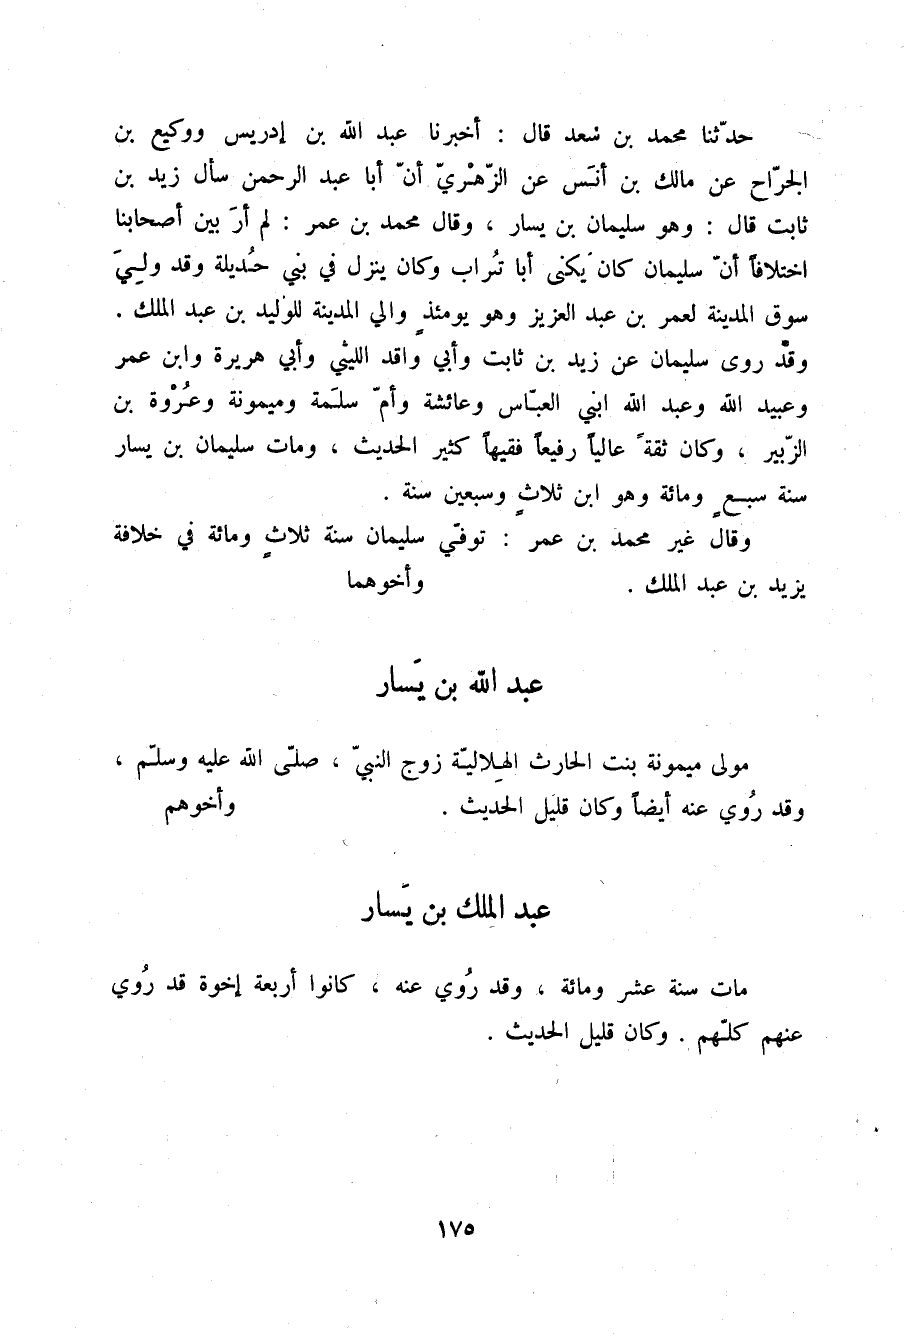 حدّثنا محمد بن سَعد قال : أخبرنا عبد الله بن إدريس ووكيع بن
الجرّاح عن مالك بن أنَس عن الزّهْريّ أنّ أبا عبد الرحمن سأل زيد بن
ثابت قال : وهو سليمان بن يسار ، وقال محمد بن عمر : لم أرَ بين أصحابنا
اختلافاً أنّ سليمان كان يُكنى أبا تُراب وكان ينزل في بني حُديلة وقد وليَ
سوق المدينة لعمر بن عبد العزيز وهو يومئذٍ والي المدينة للوَليد بن عبد الملك .
وقدْ روى سليمان عن زيد بن ثابت وأبي واقد الليثي وأبي هريرة وابن عمر
وعبيد الله وعبد الله ابني العبّاس وعائشة وأمّ سلَمة وميمونة وعُرْوة بن
الزّبير ، وكان ثقةً عالياً رفيعاً فقيهاً كثير الحديث ، ومات سليمان بن يسار
سنة سبعٍ ومائة وهو ابن ثلاثٍ وسبعين سنة .
وقال غير محمد بن عمر : توفّي سليمان سنة ثلاثٍ ومائة في خلافة
يزيد بن عبد الملك . وأخوهما
عبد الله بن يَسار
مولى ميمونة بنت الحارث الهِلاليّة زوج النبيّ ، صلّى الله عليه وسلّم ،
وقد رُوي عنه أيضاً وكان قليل الحديث . وأخوهم
عبد الملك بن يَسار
مات سنة عشر ومائة ، وقد رُوي عنه ، كانوا أربعة إخوة قد رُوي
عنهم كلّهم . وكان قليل الحديث .
١٧٥